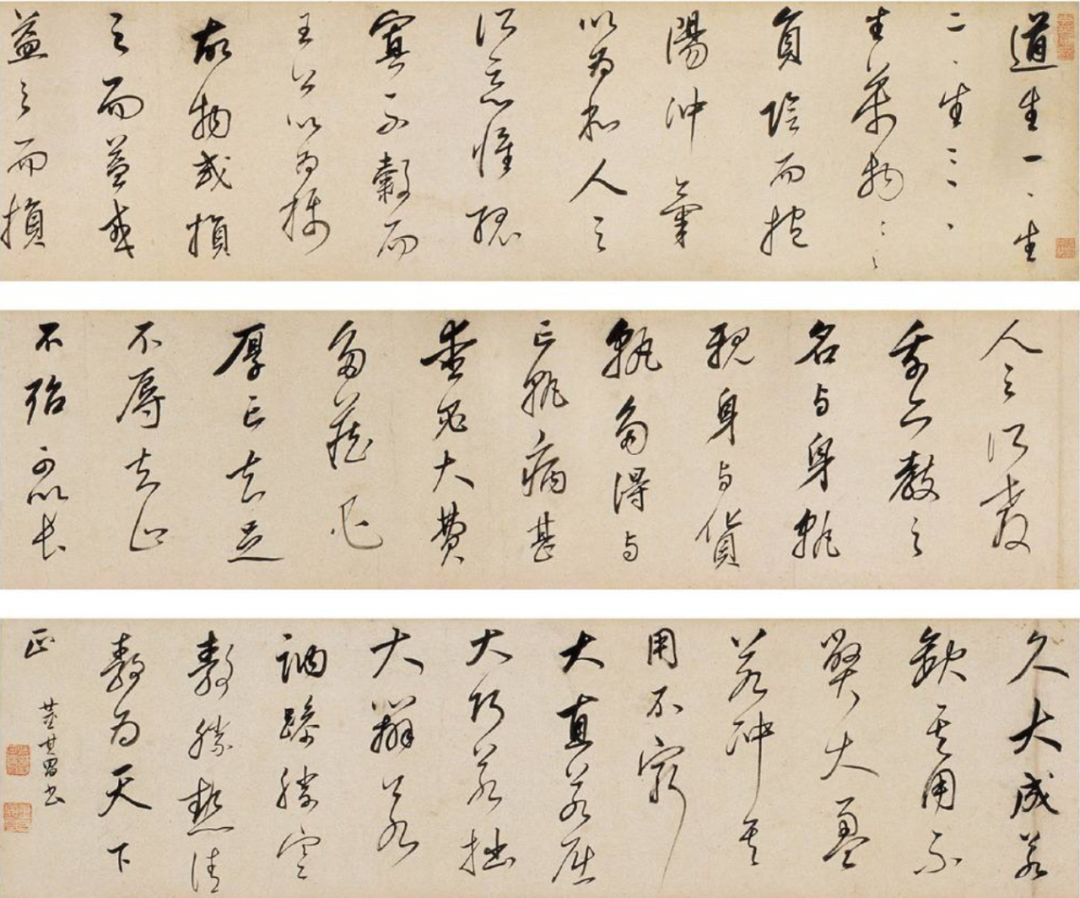 道生一、生
二、生三、、
生萬物、、
負陰而抱
陽沖氣
以為和人之
所惡惟孤
寡不穀而
王公以為稱
故物或損
之而益或
益之而損
人之所教
我亦教之
名与身孰
親身与貨
孰多得与
亡孰病甚
愛必大費
多藏必
厚亡知足
不辱知止
不殆可以長
久大成若
缺其用不
弊大盈
若沖其
用不窮
大直若屈
大巧若拙
大辯若
訥躁勝寒
靜勝熱清
靜為天下
正
董其昌書